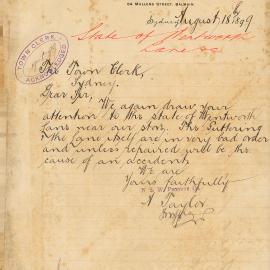 54 MULLENS STREET, BALMAIN,
Sydney, August 18th 1899
State of Wentworth
Lane
TOWN CLERK
ACKNOWLEDGED
The Town Clerk,
Sydney.
Dear Sir,
We again draw your
attention to the state of Wentworth
Lane near our store. The Guttering
& the Lane itself are in very bad order
and unless repaired will be the
cause of an accident.
We are
Yours faithfully
A Taylor